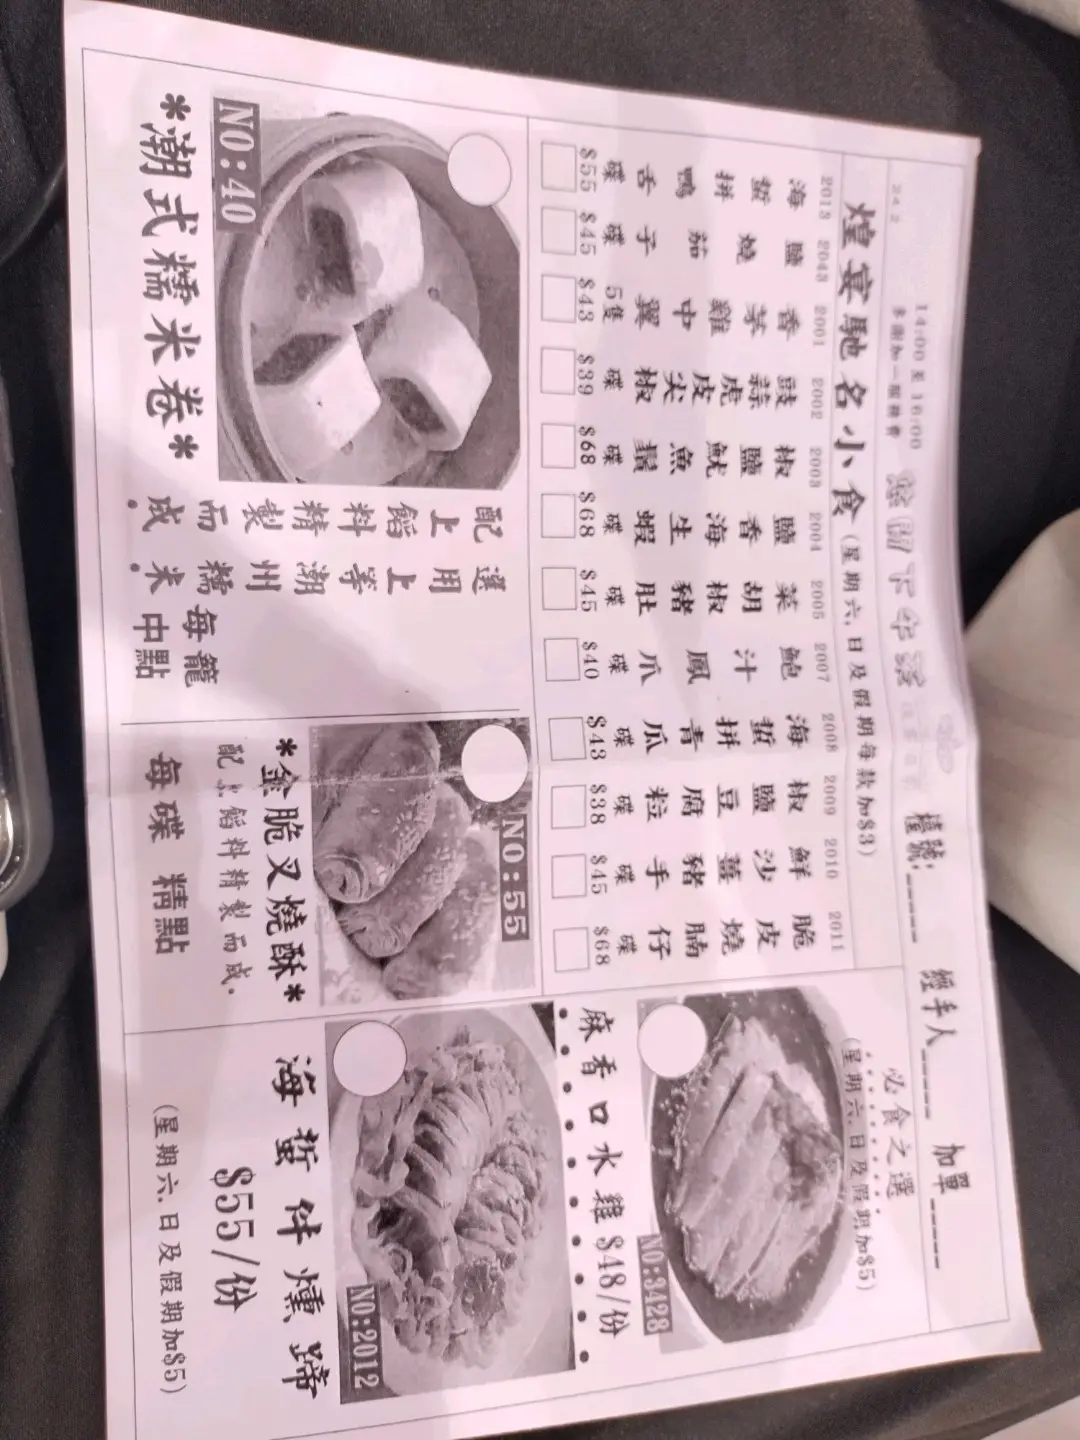 24.2
14:00 至 16:00
多謝加一服務費
檯號:____ 經手人____ 加單____
煌宴馳名小食(星期六,日及假期每款加$3)
2013 海蜇拼鴨舌 碟 $55
2043 鹽燒茄子 碟 $45
2001 香茅雞中翼 5隻 $43
2002 豉蒜虎皮尖椒 碟 $39
2003 椒鹽魷魚鬚 碟 $68
2004 鹽香海生蝦 碟 $68
2005 菜胡椒豬肚 碟 $45
2007 鮑汁鳳爪 碟 $40
2008 海蜇拼青瓜 碟 $43
2009 椒鹽豆腐粒 碟 $38
2010 鮮沙薑豬手 碟 $45
2011 脆皮燒腩仔 碟 $68
必食之選
(星期六,日及假期加$5)
NO:3428
麻香口水雞$48/份
NO:40
*潮式糯米卷*
選用上等潮州糯米.
配上餡料精製而成.
每籠 中點
NO:55
*金脆叉燒酥*
配以餡料精製而成.
每碟 精點
NO:2012
海蜇伴燻蹄
$55/份
(星期六.日及假期加$5)